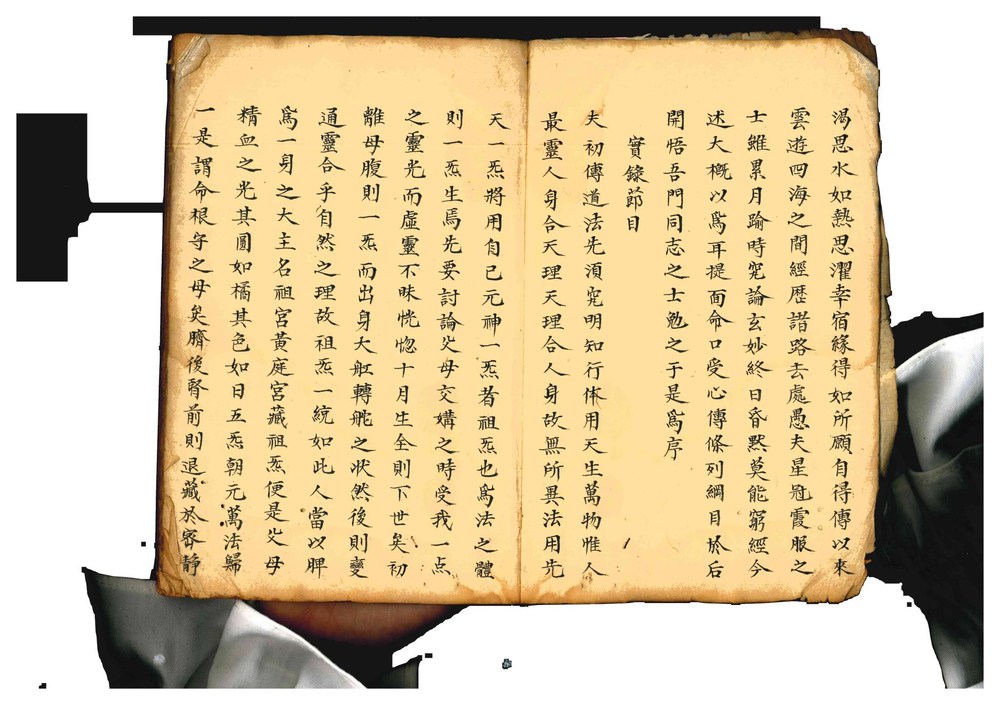 渴思水如熱思濯幸宿緣得如所願自得傳以來
雲遊四海之間經歷諸路去處愚夫星冠霞服之
士維累月踰時究論玄妙終日昏默莫能窮經今
述大槪以爲耳提面命口受心傳條列綱目於后
開悟吾門同志之士勉之于是爲序
實錄節目
夫初傳道法先須究明知行体用天生萬物惟人
最靈人身合天理天理合人身故無所異法用先
天一炁將用自己元神一炁者祖炁也爲法之體
則一炁生焉先要討論父母交媾之時受我一点
之靈光而虛靈不昧恍惚十月生全則下世矣初
離母腹則一炁而出身大舡轉艉之狀然後則變
通靈合乎自然之理故祖炁一統如此人當以脾
爲一身之大主名祖宮黃庭宮藏祖炁便是父母
精血之光其圓如橘其色如日五炁朝元萬法歸
一是謂命根守之母矣臍後腎前則退藏於密靜